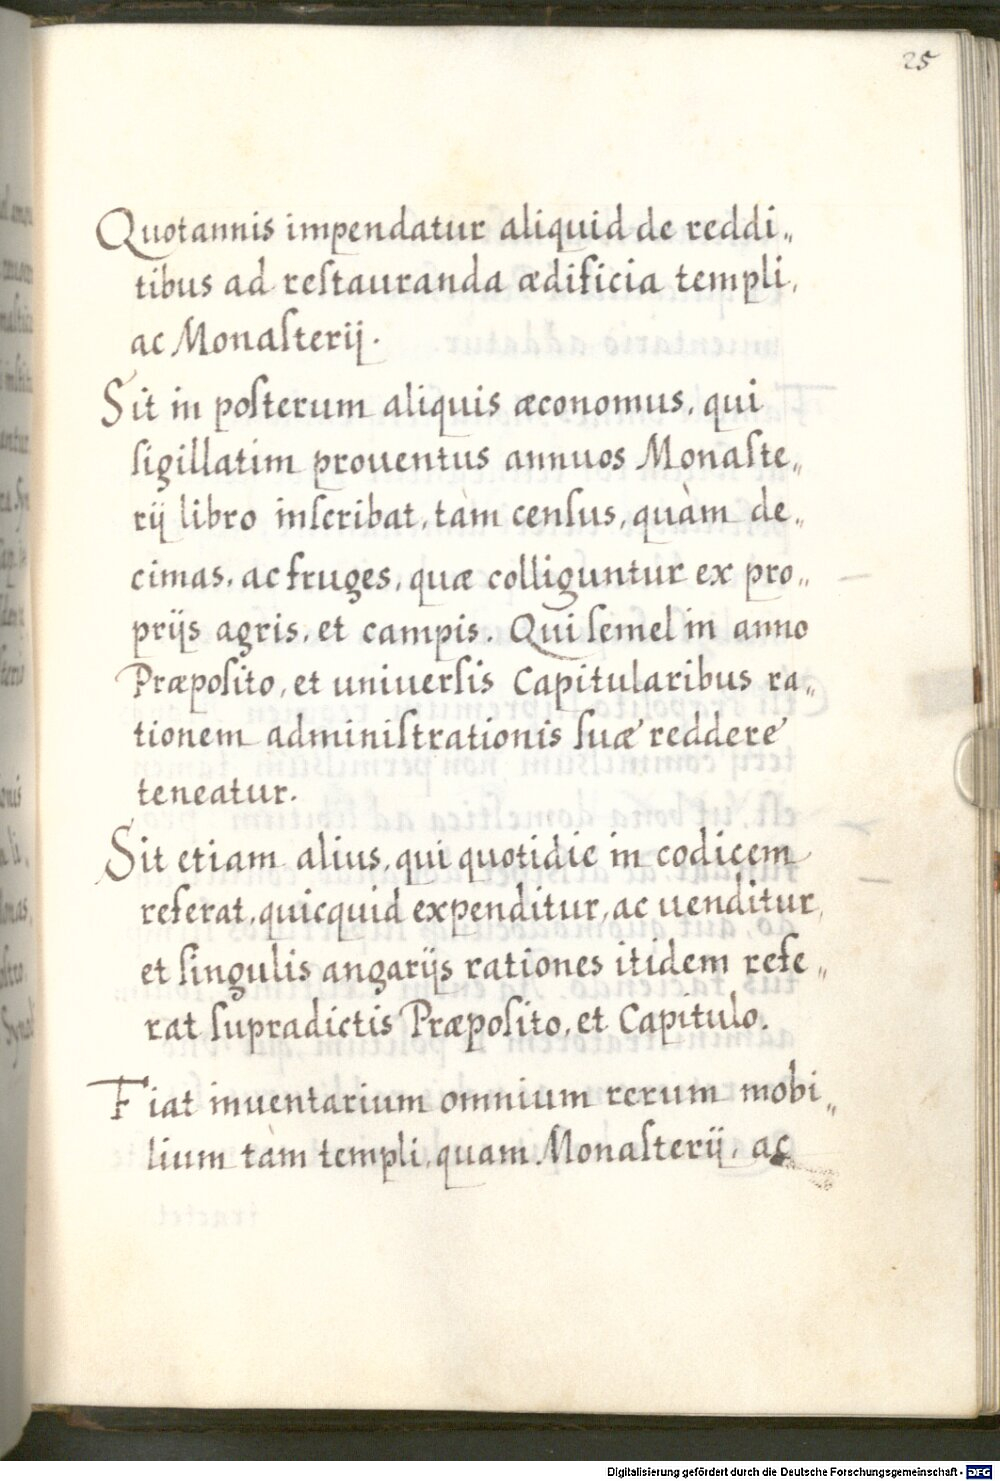 25
Quotannis impendatur aliquid de reddi„
tibus ad reſtauranda ædificia templi,
ac Monaſterij.
Sit in poſterum aliquis æconomus, qui
ſigillatim prouentus annuos Monaſte„
rij libro inſcribat, tàm cenſus, quàm de„
cimas, ac fruges, quæ colliguntur ex pro„
prijs agris, et campis. Qui ſemel in anno
Præpoſito, et uniuerſis Capitularibus ra„
tionem adminiſtrationis ſuæ reddere
teneatur.
Sit etiam alius, qui quotidie in codicem
referat, quicquid expenditur, ac uenditur,
et ſingulis angarijs rationes itidem refe„
rat ſupradictis Præpoſito, et Capitulo.
Fiat inuentarium omnium rerum mobi„
lium tàm templi, quam Monaſterij, ac
Digitalisierung gefördert durch die Deutsche Forschungsgemeinschaft - DFG